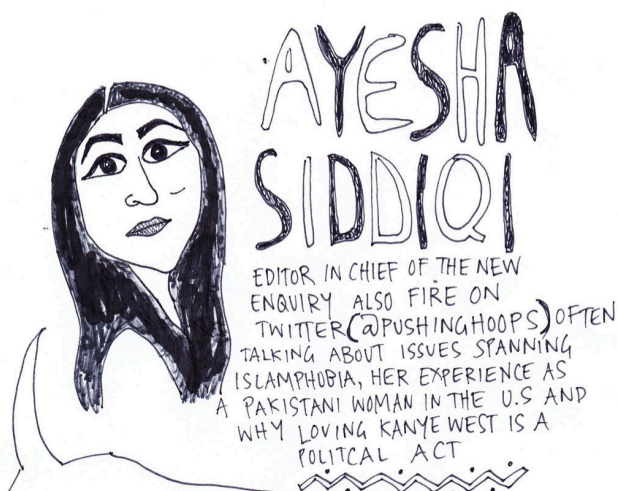 AYESHA
SIDDIQI
EDITOR IN CHIEF OF THE NEW
ENQUIRY ALSO FIRE ON
TWITTER (@PUSHINGHOOPS) OFTEN
TALKING ABOUT ISSUES SPANNING
ISLAMPHOBIA, HER EXPERIENCE AS
A PAKISTANI WOMAN IN THE U.S AND
WHY LOVING KANYE WEST IS A
POLITCAL ACT